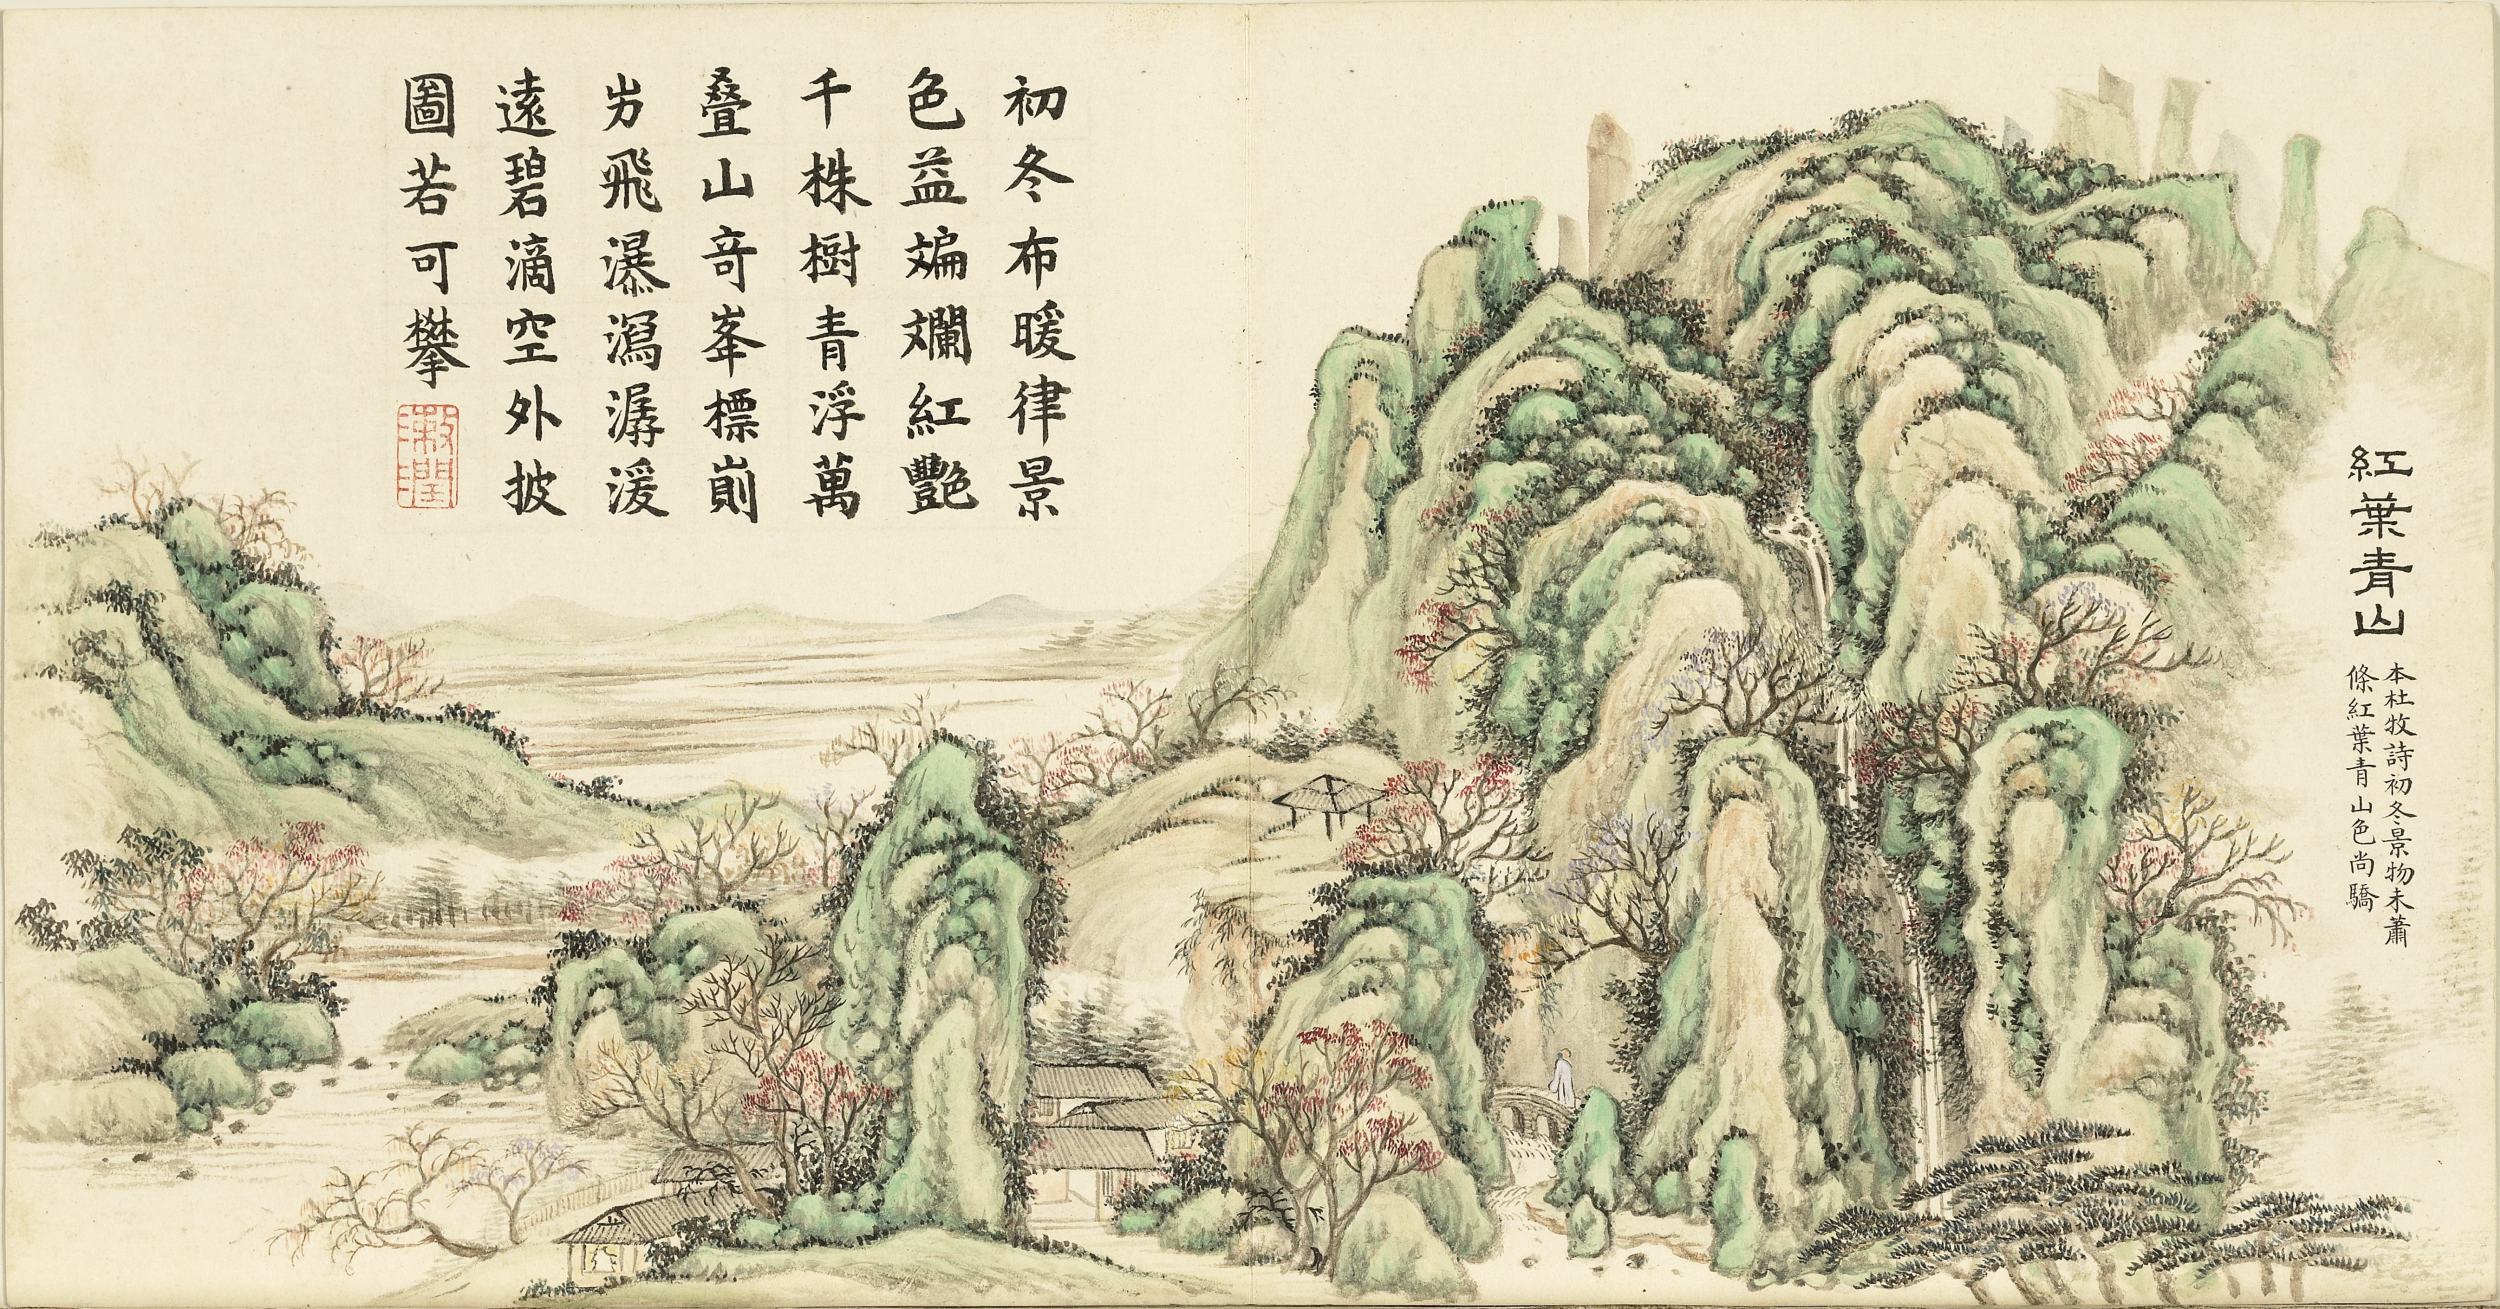 紅葉青山
本杜牧詩初冬景物未蕭
條紅葉青山色尚驕
初冬布暖律景
色益斒斕紅艷
千株樹青浮萬
叠山竒峯標崱
屴飛瀑瀉潺湲
遠碧滴空外披
圖若可攀
漱潤